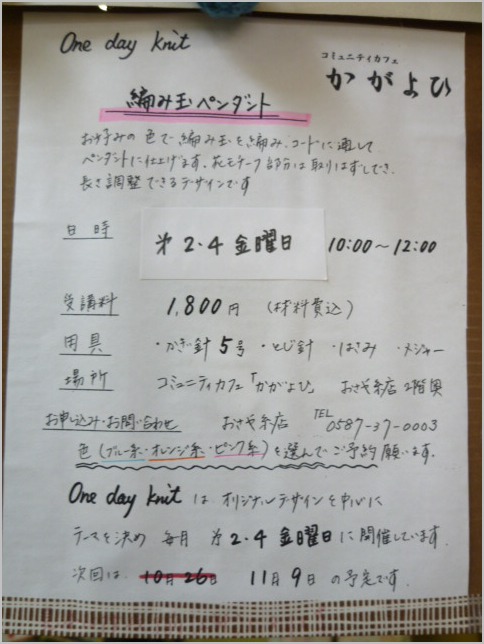 One day knit
コミュニティカフェ
かがよひ
編み玉ペンダント
お好みの色で編み玉を編み、コードに通して
ペンダントに仕上げます。花モチーフ部分は取りはずしでき、
長さ調整できるデザインです
日時 第2・4金曜日 10:00～12:00
受講料 1,800円 (材料費込)
用具 ・かぎ針5号 ・とじ針 ・はさみ ・メジャー
場所 コミュニティカフェ「かがよひ」 おさや糸店2階奥
お申し込み・お問い合わせ おさや糸店 TEL 0587-37-0003
色(ブルー系・オレンジ系・ピンク系)を選んでご予約願います。
One day knit は オリジナルデザインを中心に
テーマを決め 毎月 第2・4金曜日に開催しています。
次回は、 10月26日 11月9日 の予定です。